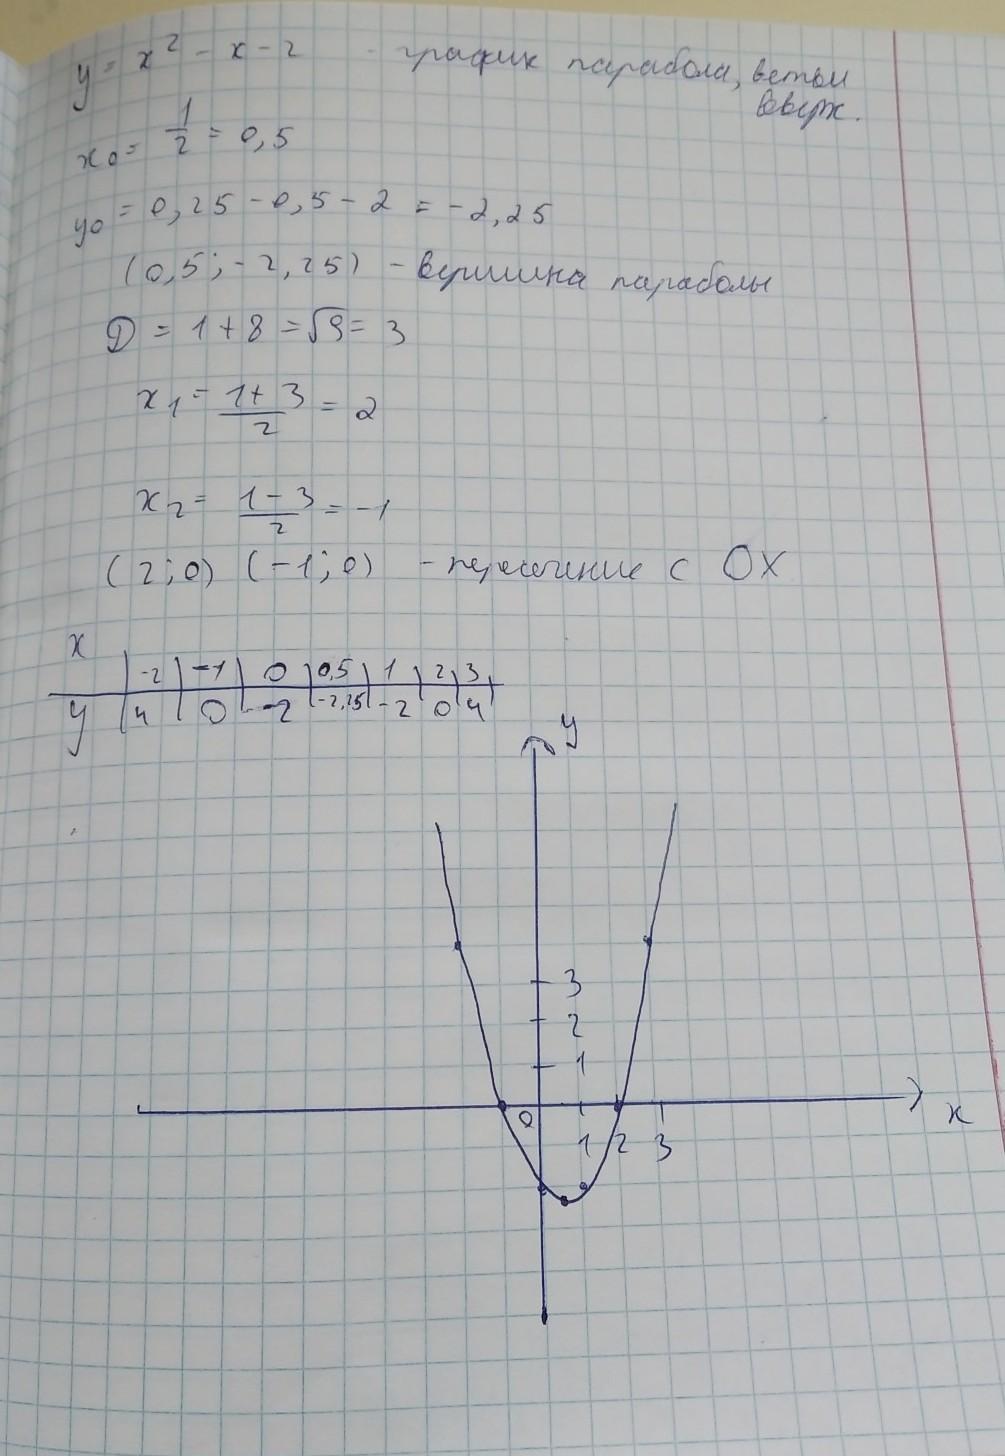 y = x² - x - 2 - график парабола, ветви
вверх.
x₀ = 1/2 = 0,5
y₀ = 0,25 - 0,5 - 2 = -2,25
(0,5; -2,25) - вершина параболы
D = 1 + 8 = √9 = 3
x₁ = (1+3)/2 = 2
x₂ = (1-3)/2 = -1
(2;0) (-1;0) - пересечение с OX
x | -2 | -1 | 0 | 0,5 | 1 | 2 | 3
y | 4 | 0 | -2 | -2,25 | -2 | 0 | 4
y
3
2
1
0
1 2 3
x